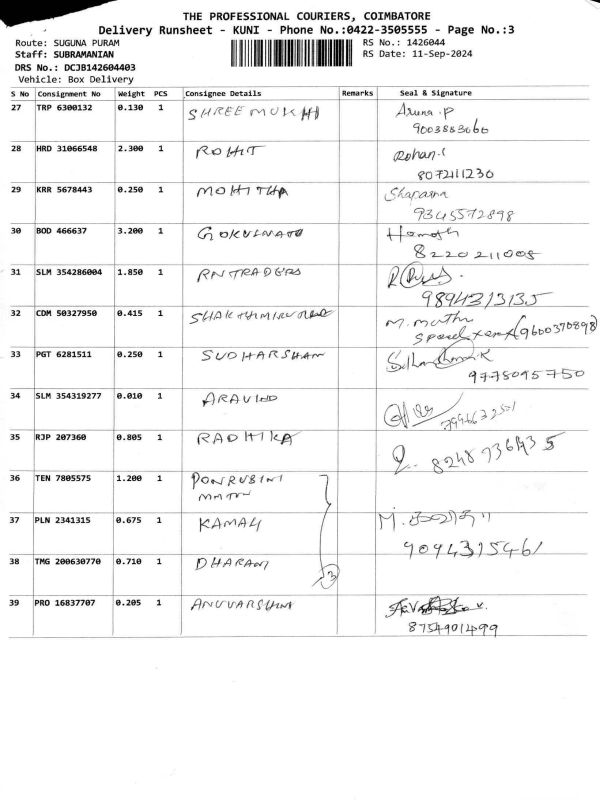 THE PROFESSIONAL COURIERS, COIMBATORE
Delivery Runsheet - KUNI - Phone No.:0422-3505555 - Page No.:3
Route: SUGUNA PURAM RS No.: 1426044
Staff: SUBRAMANIAN RS Date: 11-Sep-2024
DRS No.: DCJB142604403
Vehicle: Box Delivery
S No Consignment No Weight PCS Consignee Details Remarks Seal & Signature
27 TRP 6300132 0.130 1 SHREE MUKHI Aruna .P
9003883060
28 HRD 31066548 2.300 1 ROHIT Rohan
8072111230
29 KRR 5678443 0.250 1 MOHITHA
9345572898
30 BOD 466637 3.200 1 GOKULNATH
8220211008
31 SLM 354286004 1.850 1 RN TRADERS
9894313135
32 CDM 50327950 0.415 1 M. Muthu
(9600370898)
33 PGT 6281511 0.250 1 SUDHARSHAN
9778095750
34 SLM 354319277 0.010 1 ARAVIND
35 RJP 207360 0.805 1 RADHIKA
36 TEN 7805575 1.200 1 PONRUBINI
37 PLN 2341315 0.675 1 KAMALI
9094315461
38 TMG 200630770 0.710 1 DHARANI
3
39 PRO 16837707 0.205 1 ANUVARSHINI
8754901499